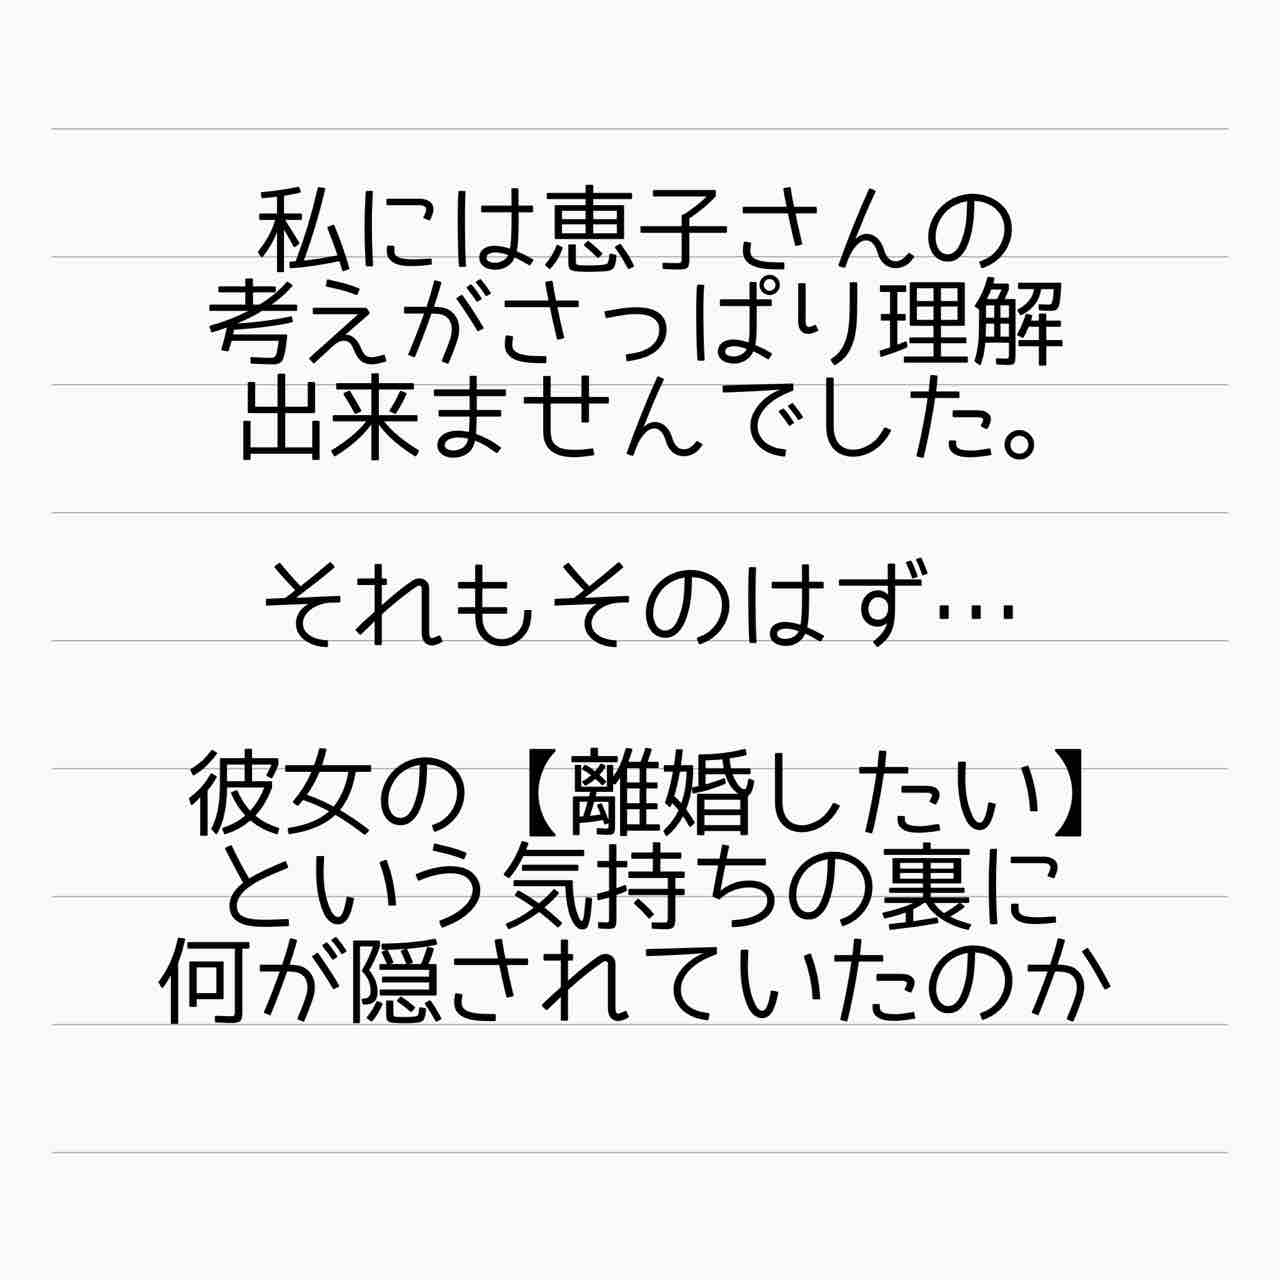 私には恵子さんの
考えがさっぱり理解
出来ませんでした。
それもそのはず…
彼女の【離婚したい】
という気持ちの裏に
何が隠されていたのか